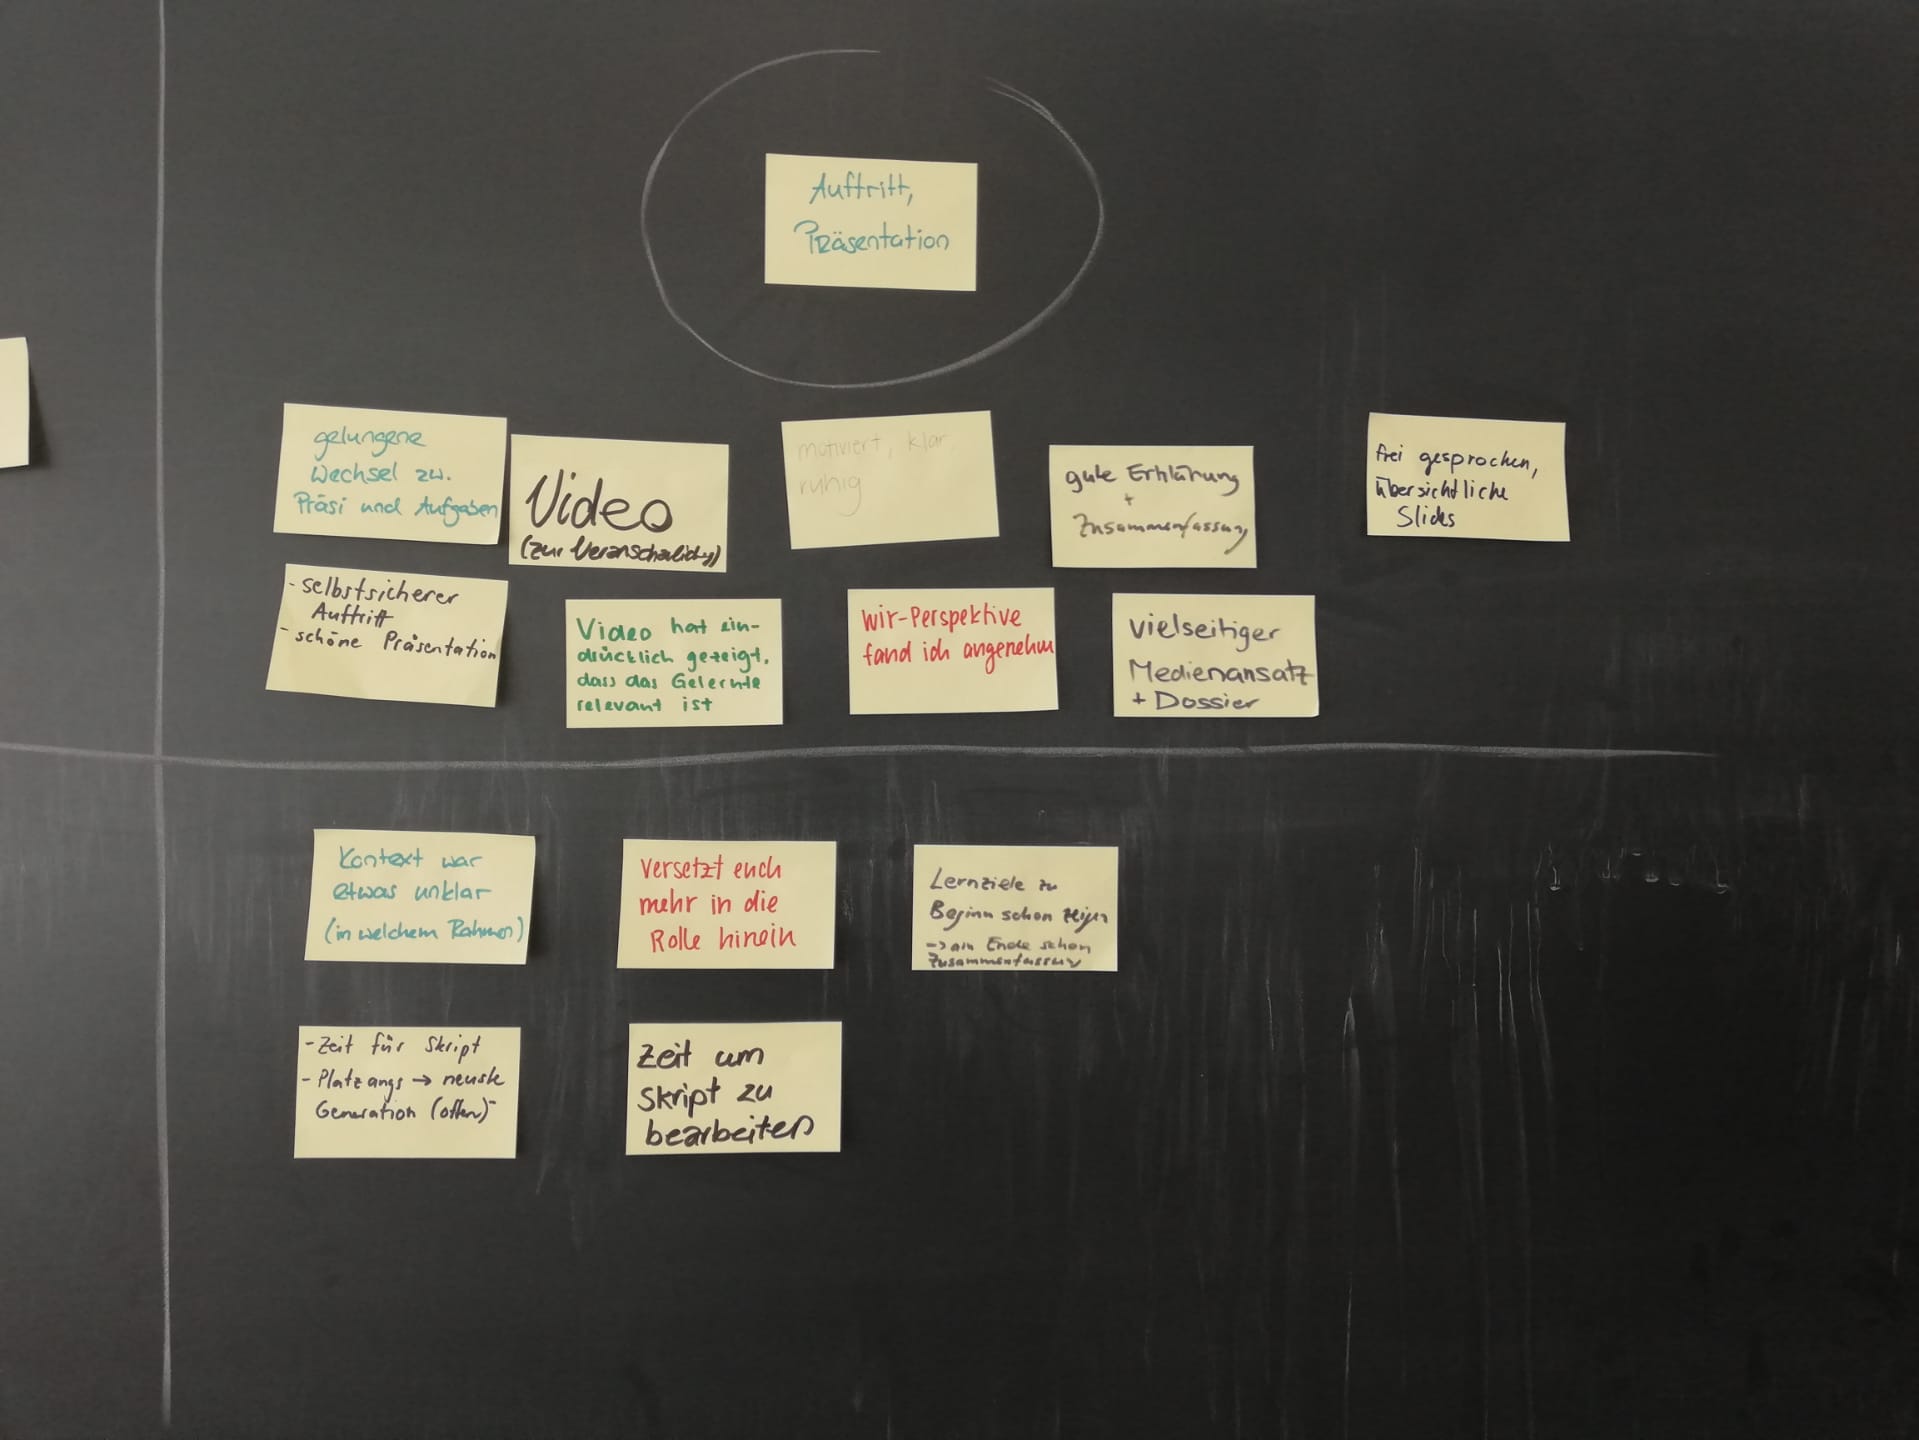 Auftritt,
Präsentation
gelungene
Wechsel zw.
Präsi und Aufgaben
Video
(zur Veranschaulichg)
motiviert, klar,
ruhig
gute Erklärung
+
Zusammenfassung
frei gesprochen,
übersichtliche
Slides
- selbstsicherer
Auftritt
- schöne Präsentation
Video hat ein-
drücklich gezeigt,
dass das Gelernte
relevant ist
Wir-Perspektive
fand ich angenehm
vielseitiger
Medienansatz
+ Dossier
Kontext war
etwas unklar
(in welchem Rahmen)
Versetzt euch
mehr in die
Rolle hinein
Lernziele zu
Beginn schon zeigen
-> am Ende schon
Zusammenfassung
- Zeit für Skript
- Platzangs →
Generation (offen)
Zeit um
Skript zu
bearbeiten